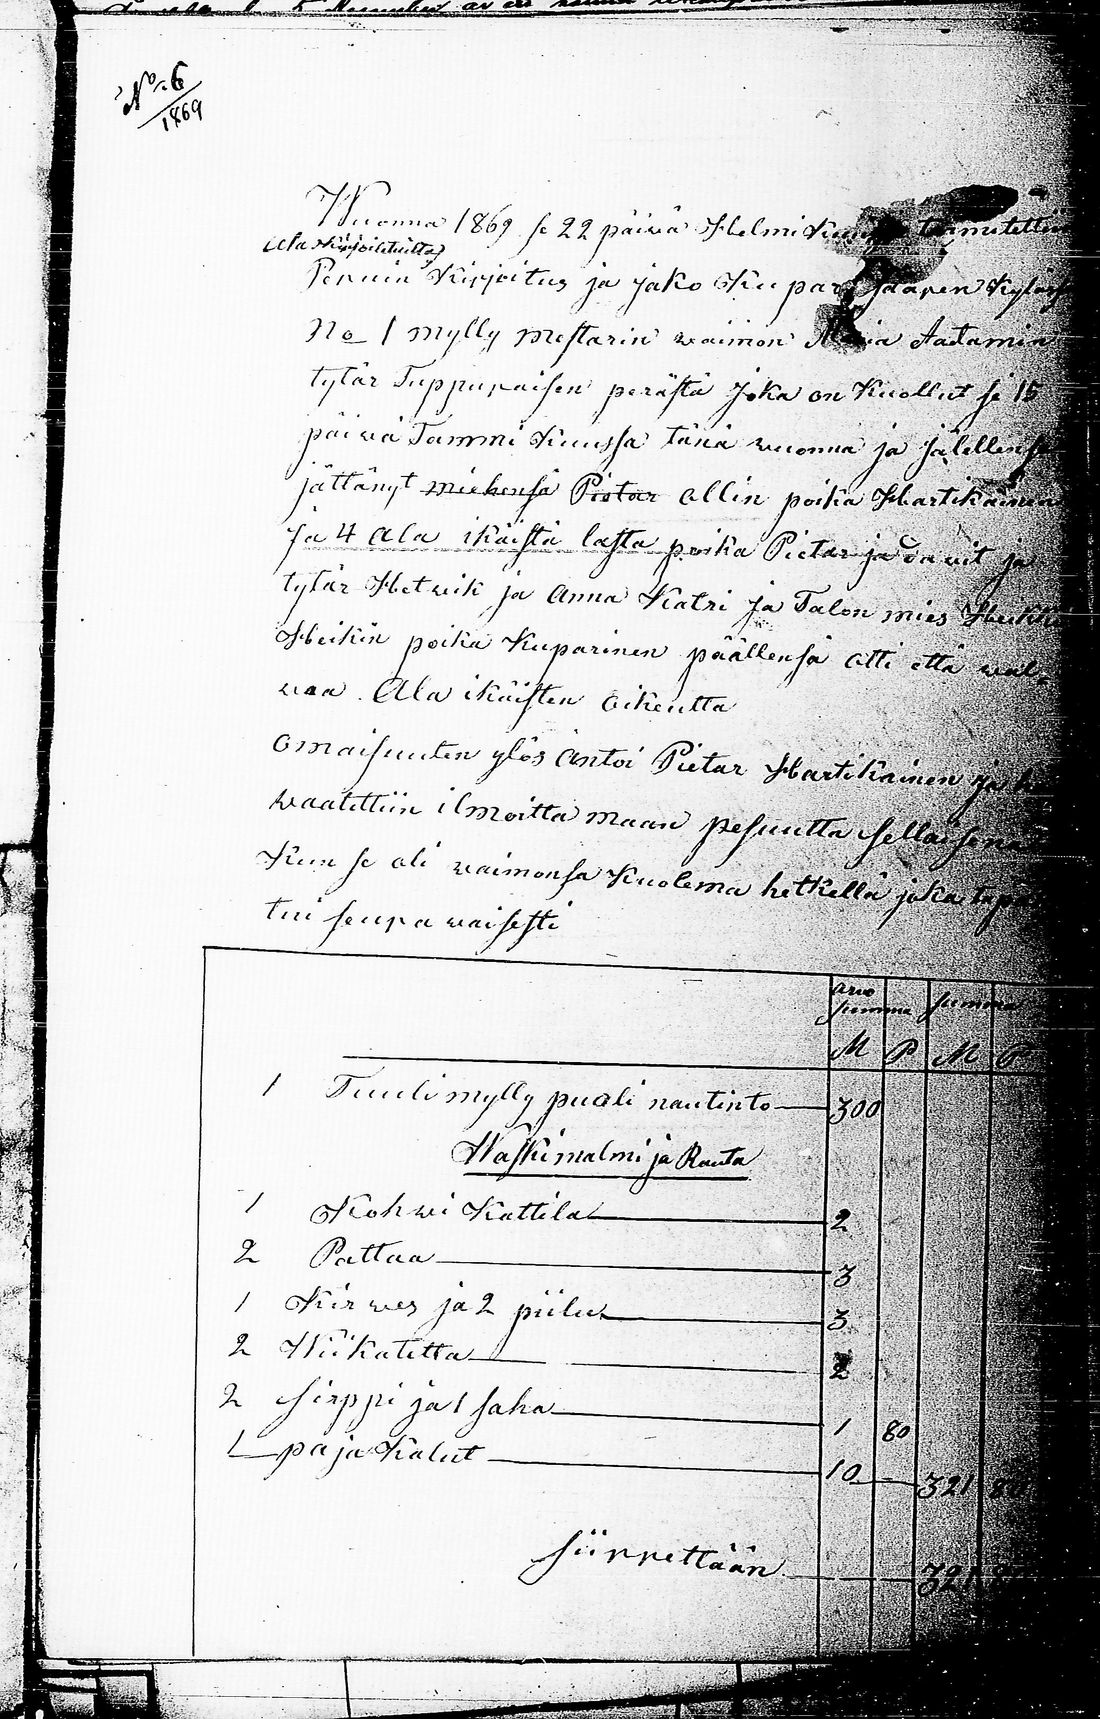 No 6
1869
Wuonna 1869 se 22 päivä Helmi Kuu toimitettiin
ala Kirjoitetuilta
Peruin Kirjoitus ja jako Kuparsaaren Kylässä
No 1 mylly mestarin waimon Maria Aatamin
tytär Tuppuraisen perästä joka on Kuollut se 15
päiwä Tammi Kuussa tänä wuonna ja jälellensä
jättänyt miehensä Pietar ollin poika Hartikainen
ja 4 ala ikäistä lasta poika Pietar ja Dawit ja
tytär Hetwik ja Anna Katri ja Talon mies Heikki
Heikin poika Kuparinen päällensä otti että wal-
woa Ala ikäisten oikeutta
omaisuuten ylös antoi Pietar Hartikainen ja
waatittiin ilmoitta maan pesuutta sellaisena
Kun se oli waimonsa Kuolema hetkellä joka tapa
tui seura waisesti
arwo summa summa
M P M P
1 Tuuli mylly puoli nautinto 300
Waski malmi ja Rauta
1 Kohwi Kattila 2
2 Pattaa 3
1 Kirwes ja 2 piilu 3
2 Wiikatetta 2
2 sirppi ja 1 saha 1 80
1 paja Kalut 10 321 80
siirrettään 321 80